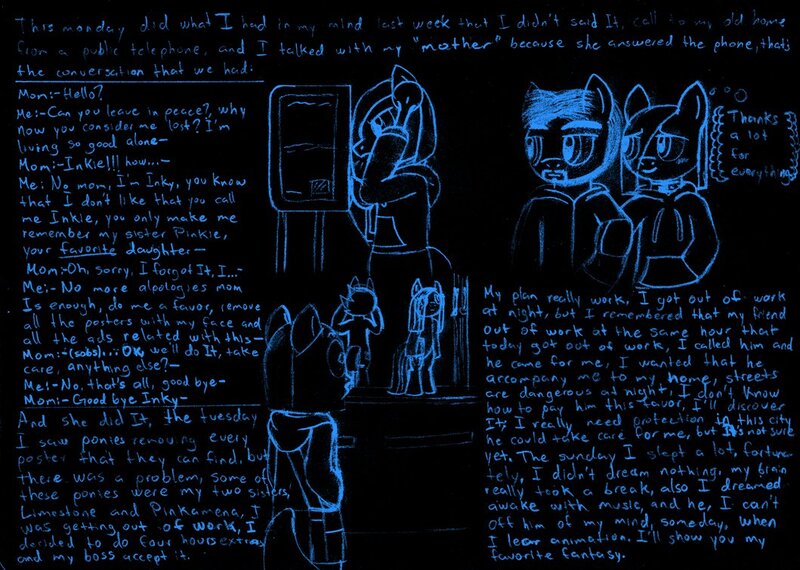 This monday did what I had in my mind last week that I didn't said It, call to my old home
from a public telephone, and I talked with my "mother" because she answered the phone, that's
the conversation that we had:
Mom:-Hello?
Me:-Can you leave in peace?, why
now you consider me lost? I'm
living so good alone-
Mom:-Inkie!!! how...-
Me: No mom, I'm Inky, you know
that I don't like that you call
me Inkie, you only make me
remember my sister Pinkie,
your favorite daughter-
Mom:-Oh, sorry, I forgot It, I...-
Me:-No more apologies mom
Is enough, do me a favor, remove
all the posters with my face and
all the ads related with this-
Mom:-(sobs)... Ok, we'll do It, take
care, anything else?-
Me:-No, that's all, good bye-
Mom:-Good bye Inky-
And she did It, the tuesday
I saw ponies removing every
poster that they can find, but
there was a problem, some of
these ponies were my two sisters,
Limestone and Pinkamena, I
was getting out of work, I
decided to do four hours extra,
and my boss accept it.
Thanks
a lot
for
everything
My plan really work, I got out of work
at night, but I remembered that my friend
out of work at the same hour that
today got out of work, I called him and
he came for me, I wanted that he
accompany me to my home, streets
are dangerous at night, I don't know
how to pay him this favor, I'll discover
It; I really need protection in this city
he could take care for me, but It's not sure
yet. The sunday I slept a lot, fortuna-
tely, I didn't dream nothing, my brain
really took a break, also I dreamed
awake with music, and he, I can't
off him of my mind, someday, when
I lear animation. I'll show you my
favorite fantasy.